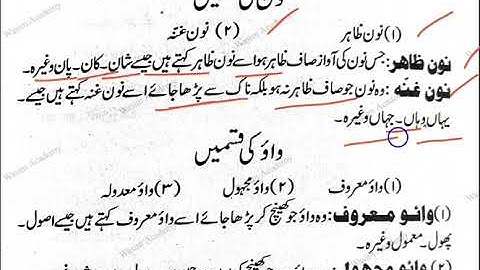 (۱) نون ظاہر (۲) نون غنّہ
نون ظاہر: جس نون کی آواز صاف ظاہر ہو اسے نون ظاہر کہتے ہیں جیسے شان۔ کان۔ پان وغیرہ۔
نون غنّہ: وہ نون جو صاف ظاہر نہ ہو بلکہ ناک سے پڑھا جائے اسے نون غنہ کہتے ہیں جیسے۔
یہاں وہاں۔ جہاں وغیرہ۔
واؤ کی قسمیں
(۱) واؤ معروف (۲) واؤ مجہول (۳) واؤ معدولہ
(۱) وائو معروف: وہ واؤ جو کھینچ کر پڑھا جائے اسے واؤ معروف کہتے ہیں جیسے اصول۔
پھول۔ معمول وغیرہ۔
(۲) وائو مجہول
Wasom Academy